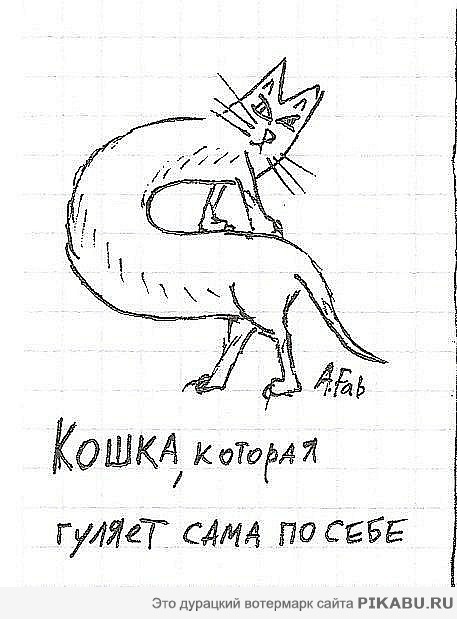 A.Fab
Кошка, которая
гуляет сама по себе
Это дурацкий вотермарк сайта PIKABU.RU